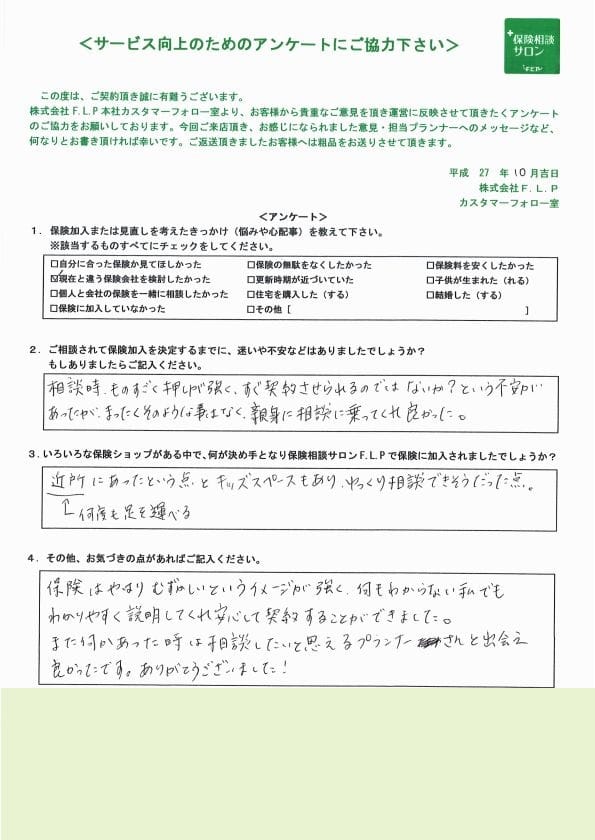 ＜サービス向上のためのアンケートにご協力下さい＞
保険相談
サロン
F.L.P
この度は、ご契約頂き誠に有難うございます。
株式会社F.L.P本社カスタマーフォロー室より、お客様から貴重なご意見を頂き運営に反映させて頂きたくアンケート
のご協力をお願いしております。今回ご来店頂き、お感じになられました意見・担当プランナーへのメッセージなど、
何なりとお書き頂ければ幸いです。ご返送頂きましたお客様へは粗品をお送りさせて頂きます。
平成 27 年 10 月吉日
株式会社F.L.P
カスタマーフォロー室
＜アンケート＞
1．保険加入または見直しを考えたきっかけ（悩みや心配事）を教えて下さい。
※該当するものすべてにチェックをしてください。
□自分に合った保険か見てほしかった □保険の無駄をなくしたかった □保険料を安くしたかった
☑現在と違う保険会社を検討したかった □更新時期が近づいていた □子供が生まれた（れる）
□個人と会社の保険を一緒に相談したかった □住宅を購入した（する） □結婚した（する）
□保険に加入していなかった □その他［ ］
2．ご相談されて保険加入を決定するまでに、迷いや不安などはありましたでしょうか？
もしありましたらご記入ください。
相談時、ものすごく押しが強く、すぐ契約させられるのではないか？という不安が
あったが、まったくそのような事はなく、親身に相談に乗ってくれ良かった。
3．いろいろな保険ショップがある中で、何が決め手となり保険相談サロンF.L.Pで保険に加入されましたでしょうか？
近所にあったという点、とキッズスペースもあり、ゆっくり相談できそうだった点。
↑何度も足を運べる
4．その他、お気づきの点があればご記入ください。
保険はやはりむずかしいというイメージが強く、何もわからない私でも
わかりやすく説明してくれ安心して契約することができました。
また何かあった時は相談したいと思えるプランナーさんと出会え
良かったです。ありがとうございました！